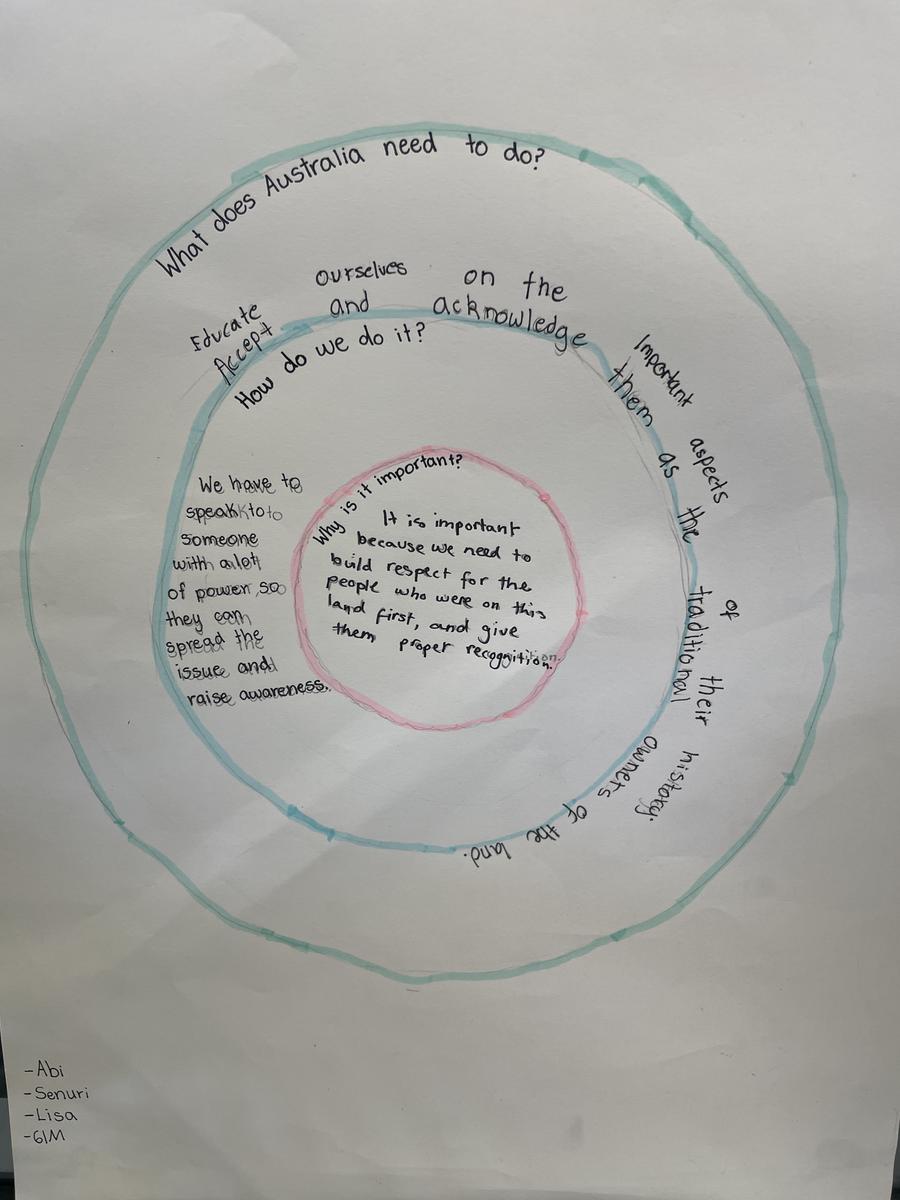 What does Australia need to do?
Educate ourselves on the Important aspects of their history.
Accept and acknowledge them as the traditional owners of the land.
How do we do it?
We have to
speak to
someone
with alot
of power so
they can
spread the
issue and
raise awareness.
Why is it important?
It is important
because we need to
build respect for the
people who were on this
land first, and give
them proper recognition.
-Abi
-Senuri
-Lisa
-6IM